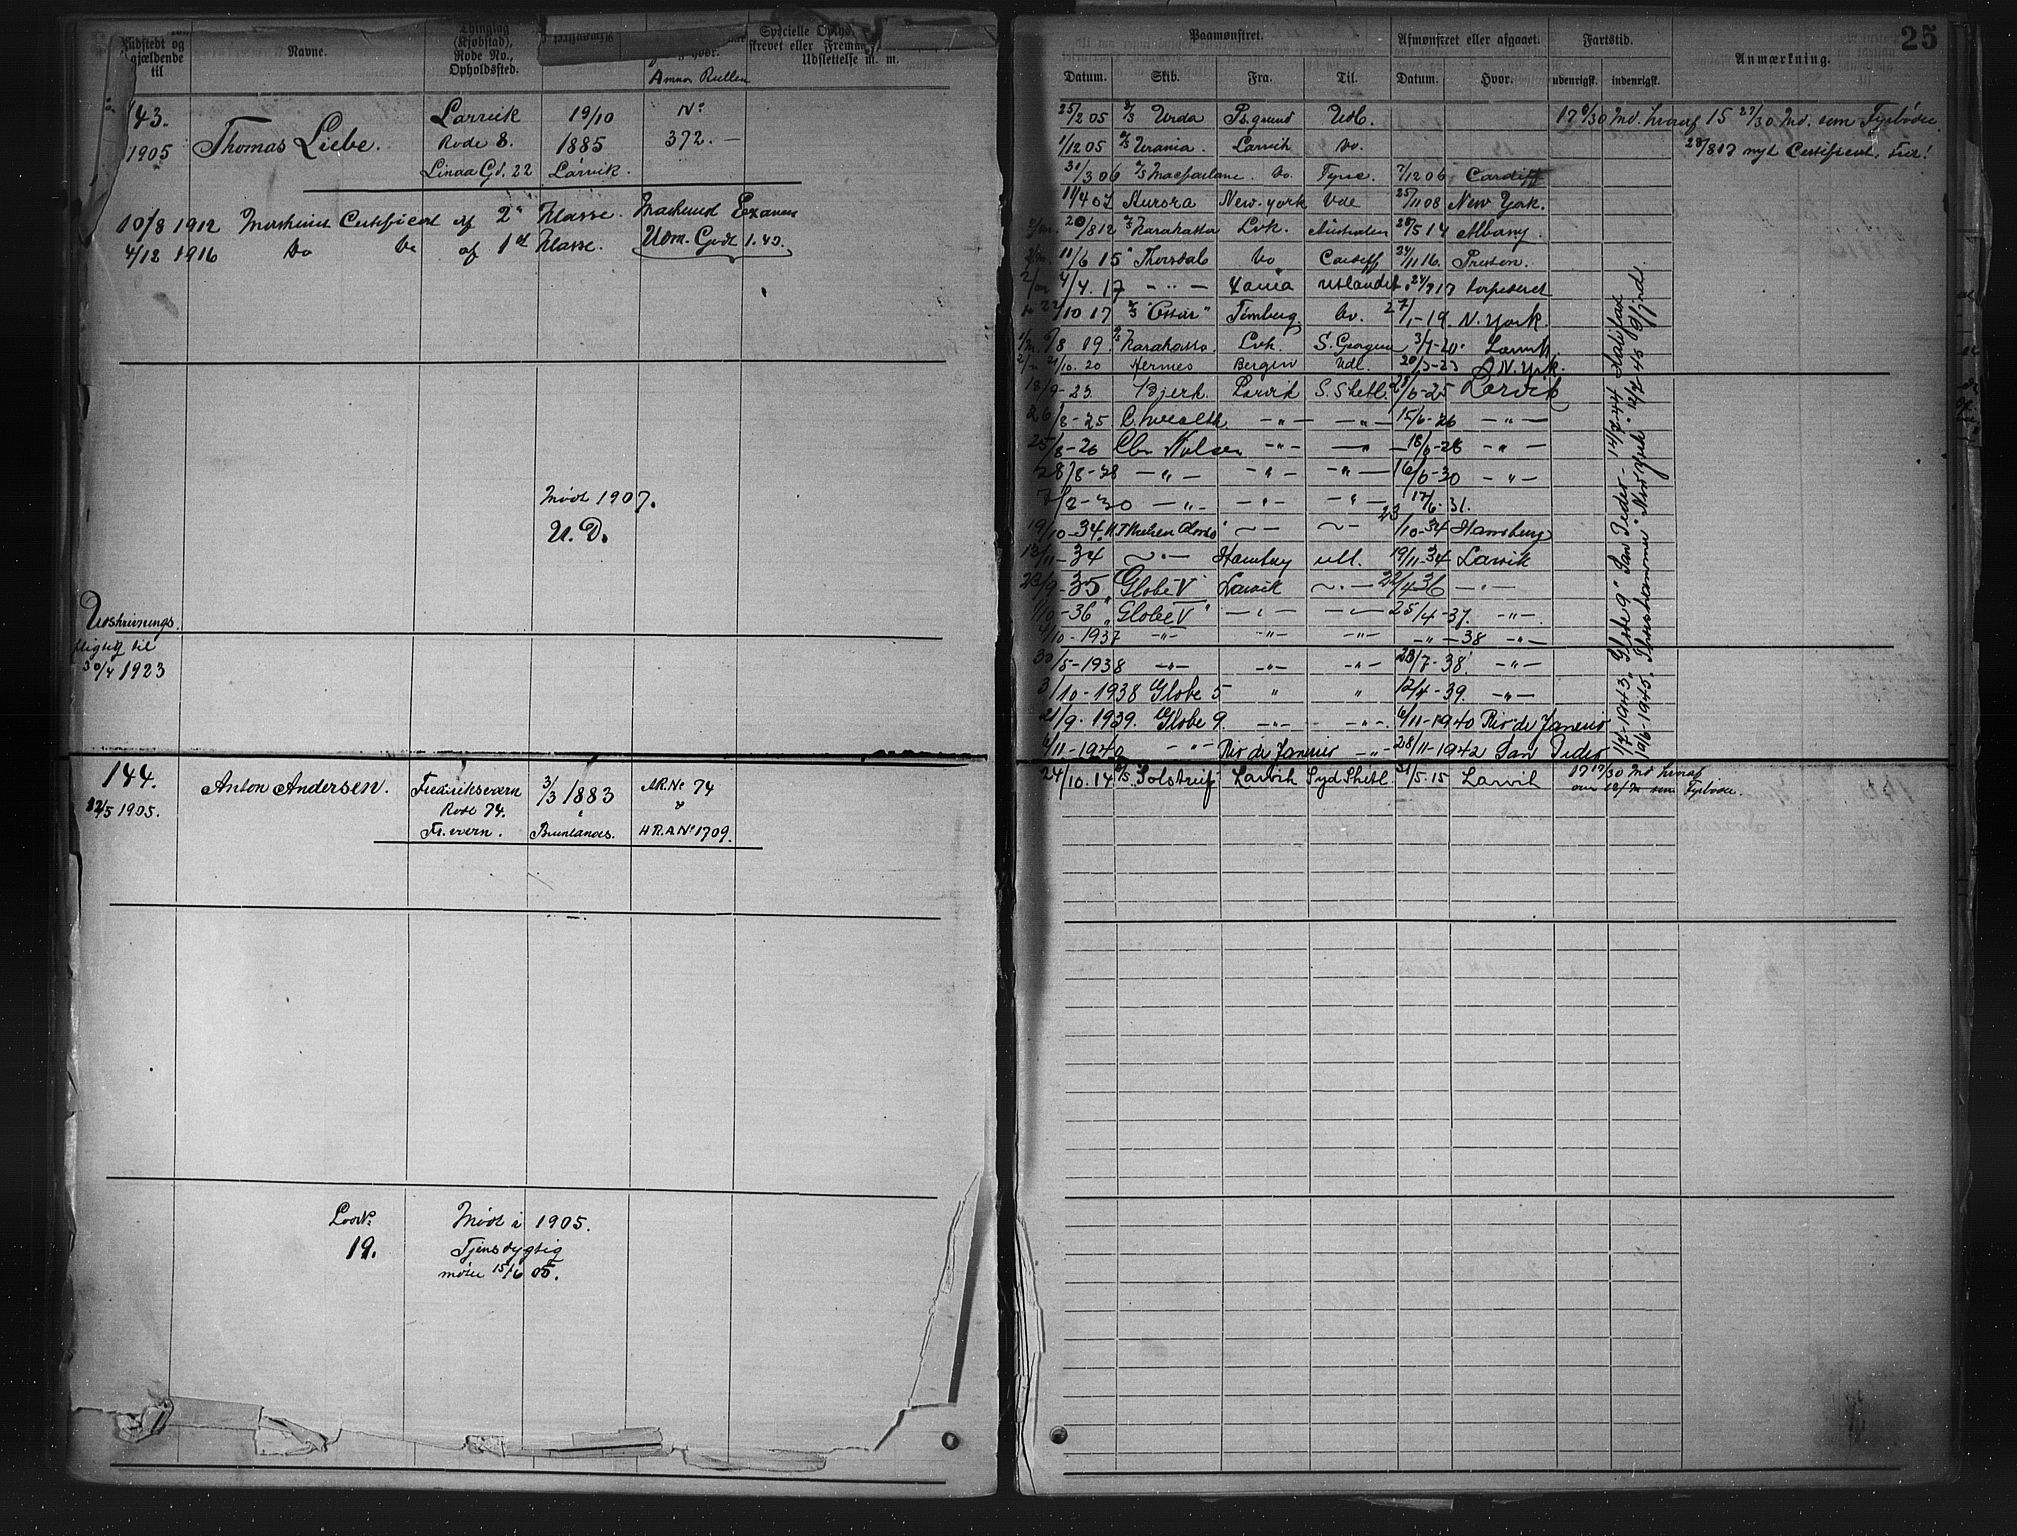 Udstedt og
gjældende
til
Navne.
Thinglag
(Kjøbstad),
Rode No.,
Opholdssted.
Specielle Ophold
Udslettelse m. m.
Annos Rullen
143.
1905
Thomas Liebe.
Larvik
Rode 8.
Linaa Gd. 22
19/10
1885
Larvik.
No
372.—
10/8 1912 Maskinist Certificat af 2n Klasse. Maskinist Examen
4/12 1916 Do Do af 1st Klasse. Udm. Godt 1.45.
Mødt 1907.
U. D.
Udskrivnings
pligtig til
30/4 1923
144.
12/5 1905.
Anton Andersen.
Fredriksvern
Rode 74.
Fr.svern.
3/3 1883
Brunlanes.
AR.No 74
HR.A No 1709.
Larvk
19.
Mødt i 1905.
Tjenstdygtig
møde 15/6 05.
25
Paamønstret.
Afmønstret eller afgaaet.
Fartstid.
Anmærkning.
Datum.
Skib.
Fra.
Til.
Datum.
Hvor.
udenrigsk.
indenrigsk.
25/2 05 D/S Urda Ps.grund Udl. 17 6/30 Md. hvoraf 15 27/30 Md. som Fyrbøder.
1/12 05 D/S Urania. Larvik do. 28/8 17 nyt Certificat
31/3 06 D/S Macfarlane. do Tyne. 7/12 06 Cardiff
11/4 07 Aurora New-york Ude 25/11 08 New York.
20/8 12 D/S Karakatta Lvk. Australien 28/5 14 Albany.
11/6 15 Thorsdal do Cardiff 24/11 16. Preston.
4/4. 17 — " — Xania Utlandet. 24/7 17 torpederet
22/10 17 D/S "Ossar" Tønsberg do. 27/1-19. N. York.
6/8 19. D/S Karakatta. Lvk. S. Georgien 3/7-20 Larvik.
21/10. 20 Hermes Bergen Udl. 20/3-23 N. York.
18/9-23. Bjerk Larvik S. Shetl. 28/6-25 Larvik
26/8-25 C.wealth — " — — " — 15/6-26 — " —
25/8-26 Chr Nielsen — " — — " — 18/6-28 — " —
28/8-28 — " — — " — — " — 16/6-30 — " —
7/2-30 — " — — " — — " — 17/6-31.
19/10-34. N. T Nielsen Alonso 23/10-34 Hamburg
13/11-34 — " — Hamburg utl. 19/11-34 Larvik
23/9-35 "Globe V" Larvik — " — 22/4-36 — " —
1/10-36 "Globe V" — " — — " — 25/4-37. — " —
4/10-1937 — " — — " — — " — — " — 38 — " —
30/5-1938 — " — — " — — " — 28/7-38 — " —
3/10-1938 Globe 5 " " 12/4-39. — " —
21/9. 1939. Globe 9 — " — — " — 6/11-1940 Rio de Janeiro
6/11-1940 — " — Rio de Janeiro — " — 28/11-1942 San Peder
1/7-1943. "Globe 9" San Peder - 14/2-44 Halifax
19/6-1945. Thorshammer New York 12/7-45
24/10. 14 D/S Solstreif Larvik Syd Shetl 31/5-15 Larvik 17 17/30 Md hvoraf
som Fyrbøder.